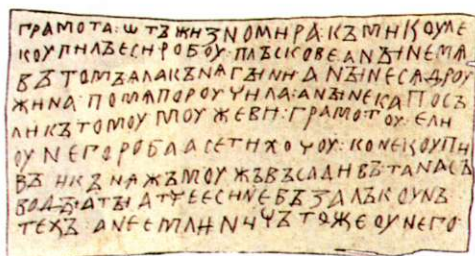 ГРАМОТА:ѠТЪЖИЗНОМИРА:КЪМИКОУЛЕ
КОУПИЛЪЕСИРОБОУ:ПЛЪСКОВЕ:АНЪІНЕМѦ
ВЪТОМЪѦЛАКЪНѦГЪІНИ:АНЪІНЕСѦДРОУ
ЖИНА:ПОМѦПОРОУЧИЛА:АНЪІНЕКАПОСЪ
ЛИКЪТОМОУМОУЖЕВИ:ГРАМОТОУ:ЕЛИ
ОУНЕГОРОБААСЕТИХОЧОУ:КОНЕКОУПИ
ВЪИКЪНѦЖЪМОУЖЪВЪСАДИВЪТАНАСЪ
ВОДЪІ:АТЪІАТЧЕЕСИНЕВЪЗАЛЪКОУНЪ
ТЕХЪ:АНЕЕМЛИНИЧЪТОЖЕОУНЕГО: